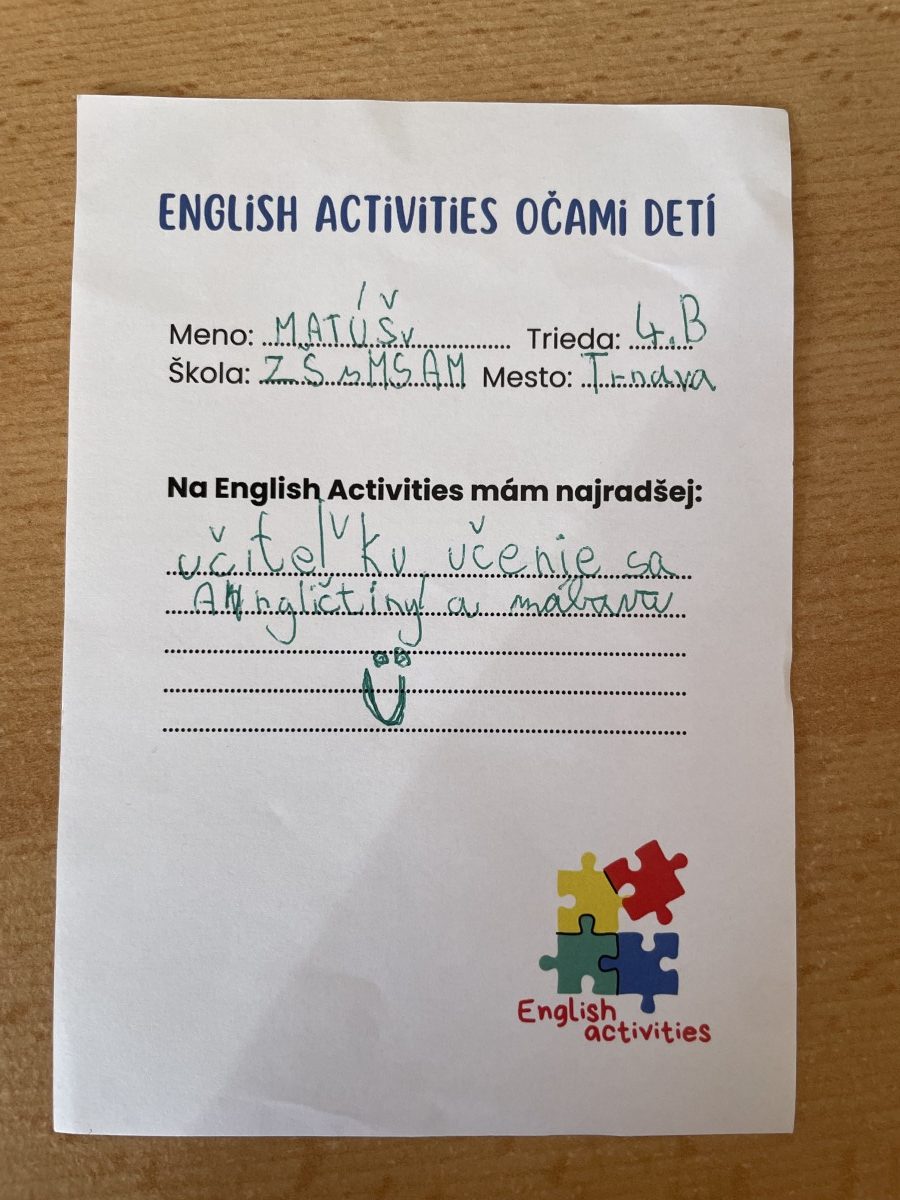 ENGLISH ACTIVITIES OČAMI DETÍ
Meno: MATÚŠ Trieda: 4.B
Škola: ZŠ s MŠ AM Mesto: Trnava
Na English Activities mám najradšej:
učiteľku, učenie sa
Angličtiny a zábavu
English
activities